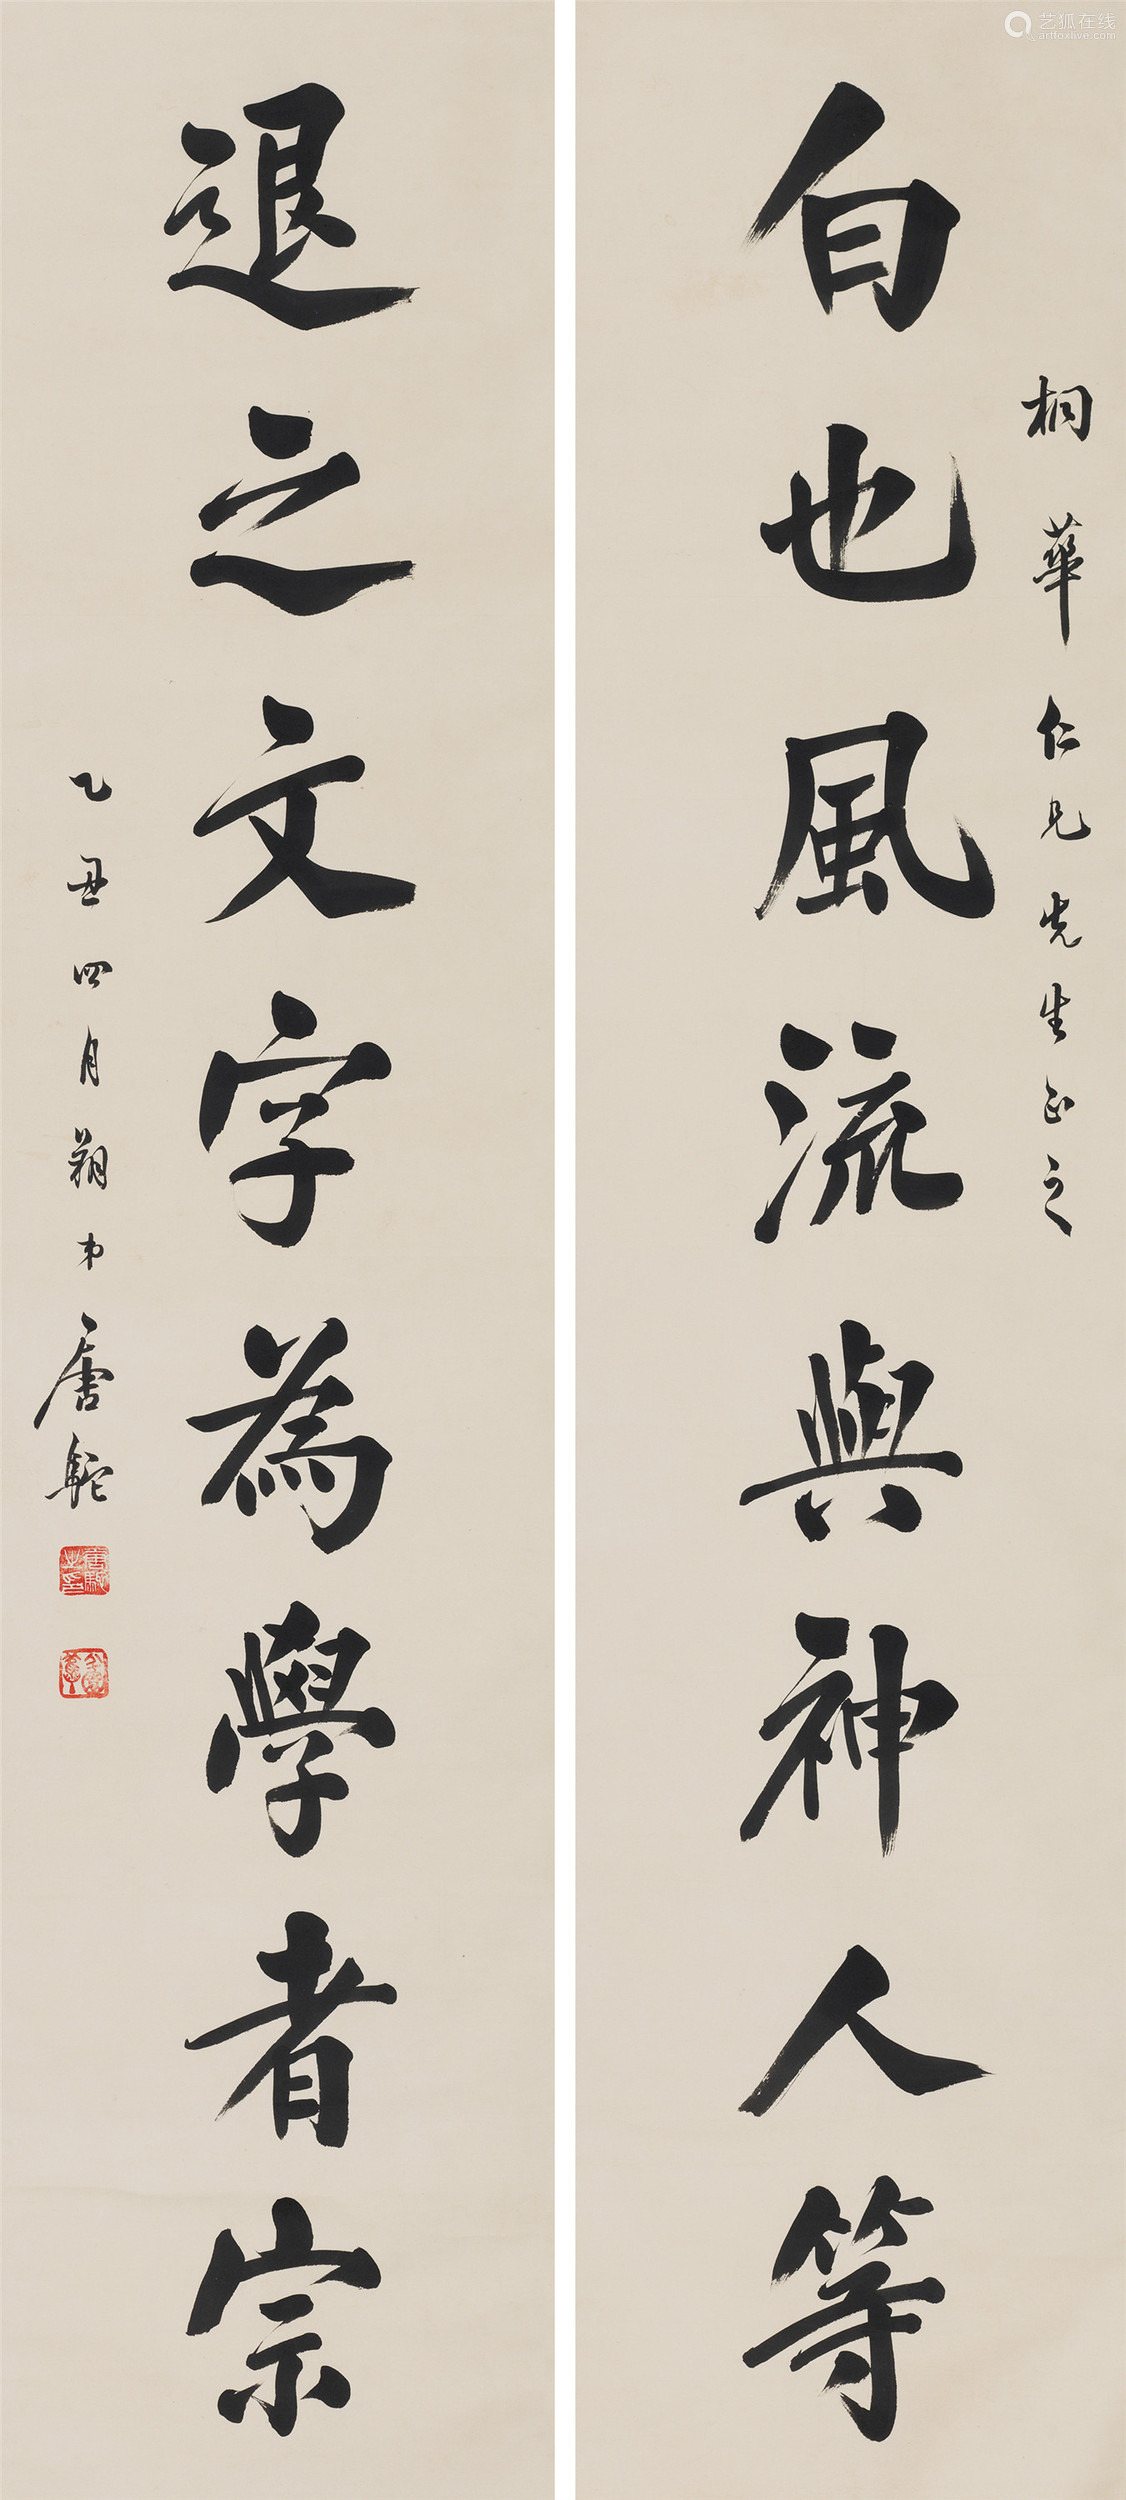 艺狐在线
artfoxlive.com
桐華仁兄先生正之
白也風流與神人等
退之文字為學者宗
乙丑四月朔弟唐駝
唐駝之印